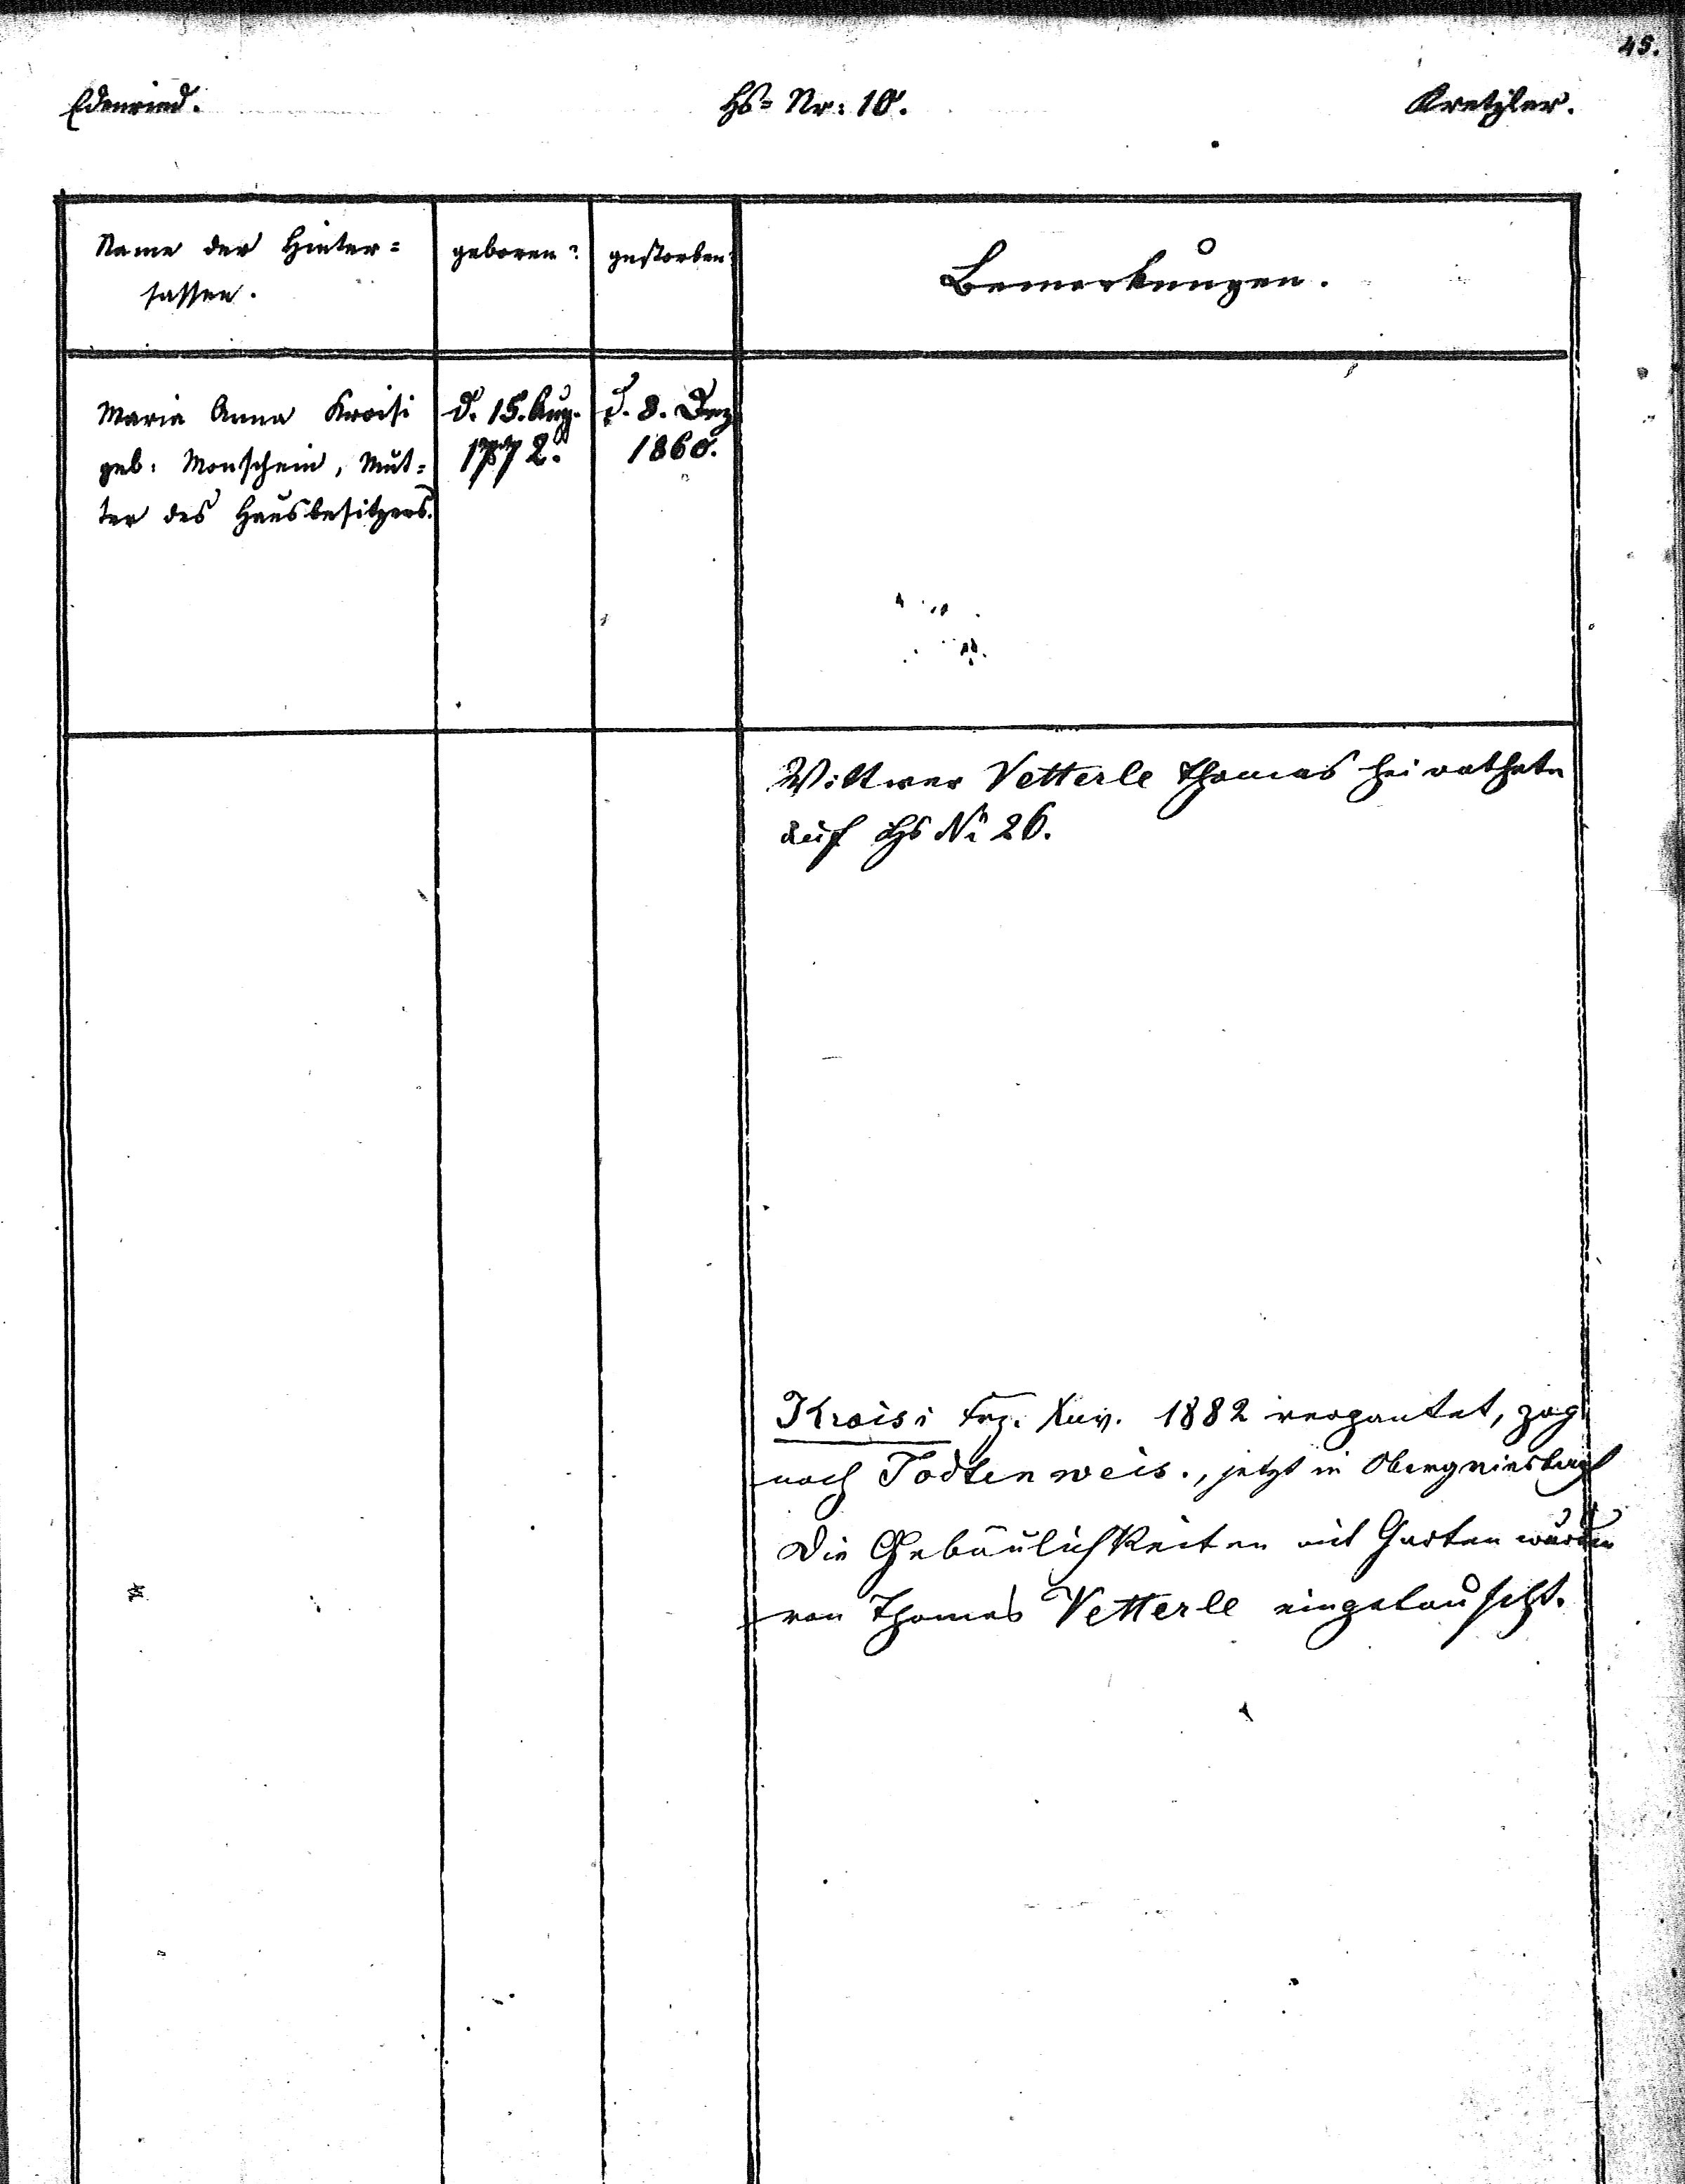 45.
Edenried. Hs= Nr: 10. Kretzler.
Name der Hinter=
sassen.
geboren?
gestorben?
Bemerkungen.
Maria Anna Kroisi
geb: Monschein, Mut=
ter des Hausbesitzers.
d. 15. Aug.
1772.
d. 8. Dez
1860.
Wittwer Vetterle Thomas heirathete
auf Hs No 26.
Kroisi Frz. Xav. 1882 vergantet, zog
nach Todtenweis., jetzt in Obergriesbach
Die Gebäulichkeiten mit Garten wurden
von Thomas Vetterle eingetauscht.